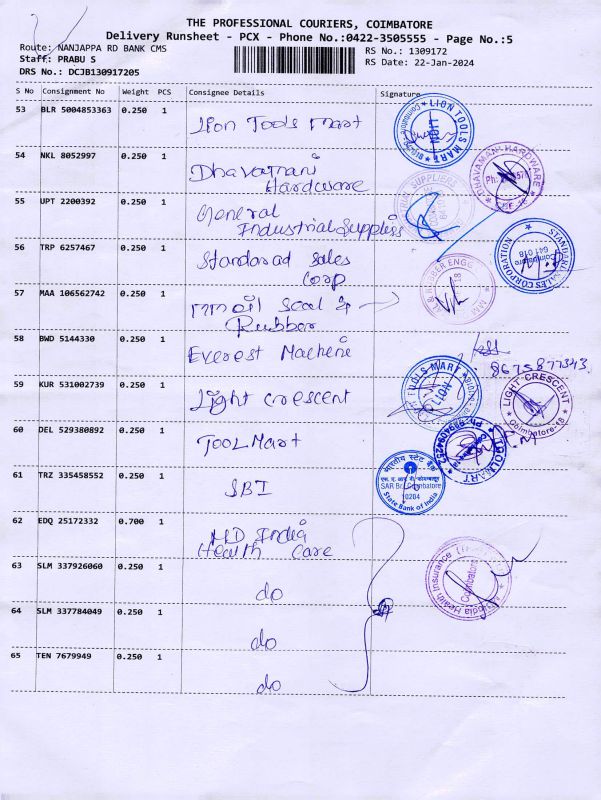 THE PROFESSIONAL COURIERS, COIMBATORE
Delivery Runsheet - PCX - Phone No.:0422-3505555 - Page No.:5
Route: NANJAPPA RD BANK CMS
RS No.: 1309172
Staff: PRABU S
RS Date: 22-Jan-2024
DRS No.: DCJB130917205
S No Consignment No Weight PCS Consignee Details Signature
53 BLR 5004853363 0.250 1 Lion Tools Mart
LION TOOLS MART
54 NKL 8052997 0.250 1 Dhavamani
Hardware
DHAVAMANI HARDWARE
55 UPT 2200392 0.250 1 General
Industrial Suppliers
SUPPLIERS
56 TRP 6257467 0.250 1 Standarad Sales
Corp
STANDARD SALES CORPORATION
Coimbatore
641 018
57 MAA 106562742 0.250 1 mm oil seal &
Rubber
58 BWD 5144330 0.250 1 Everest Machine
8675877343
59 KUR 531002739 0.250 1 Light crescent
TOOLS MART
LION
LIGHT CRESCENT
Coimbatore-18
60 DEL 529380892 0.250 1 TOOL Mart
TOOLMART
61 TRZ 335458552 0.250 1 SBI
भारतीय स्टेट बैंक
SAR Br., Coimbatore
10204
State Bank of India
62 EDQ 25172332 0.700 1 MD India
Health Care
Health Insurance
Coimbatore
63 SLM 337926060 0.250 1 do
64 SLM 337784049 0.250 1 do
65 TEN 7679949 0.250 1 do